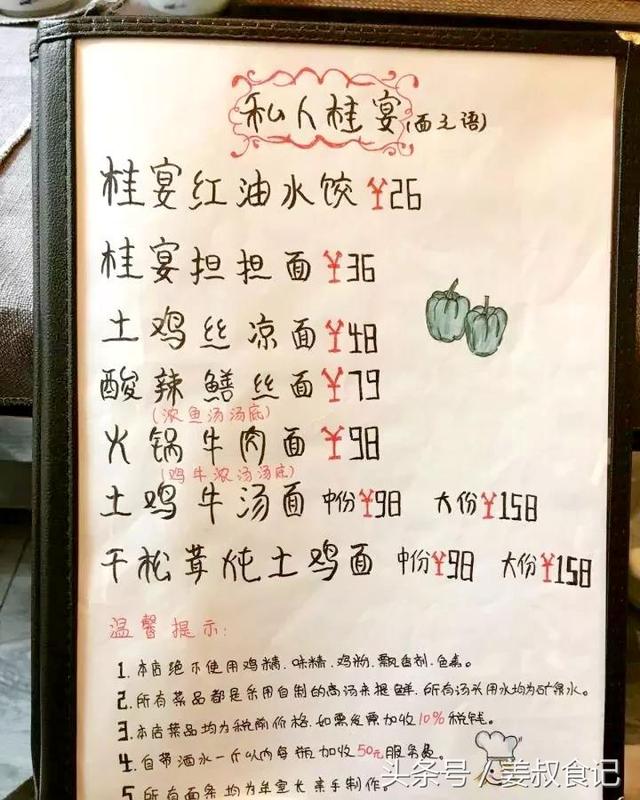 私人桂宴(面之语)
桂宴红油水饺¥26
桂宴担担面¥36
土鸡丝凉面¥48
酸辣鳝丝面¥79
(浓鱼汤汤底)
火锅牛肉面¥98
(鸡牛浓汤汤底)
土鸡牛汤面 中份¥98 大份¥158
干松茸炖土鸡面 中份¥98 大份¥158
温馨提示:
1.本店绝不使用鸡精.味精.鸡粉.飘香剂.色素。
2.所有菜品都是采用自制的高汤来提鲜.所有汤头用水均为矿泉水。
3.本店菜品均为税前价格.如需发票加收10%税钱。
4.自带酒水一斤以内每瓶加收50元服务费。
5.所有面条均为羊室长亲手制作。
头条号/姜叔食记